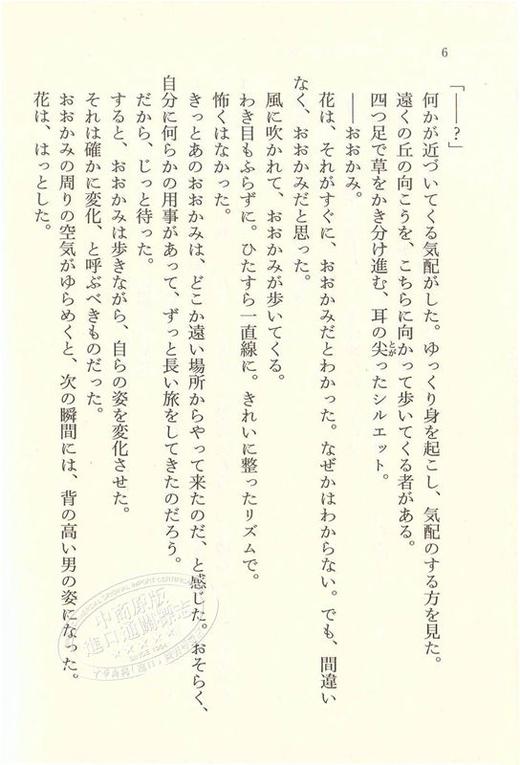 6
「――？」
何かが近づいてくる気配がした。ゆっくり身を起こし、気配のする方を見た。
遠くの丘の向こうを、こちらに向かって歩いてくる者がある。
四つ足で草をかき分け進む、耳の尖ったシルエット。
とが
――おおかみ。
花は、それがすぐに、おおかみだとわかった。なぜかはわからない。でも、間違い
なく、おおかみだと思った。
風に吹かれて、おおかみが歩いてくる。
わき目もふらずに。ひたすら一直線に。きれいに整ったリズムで。
怖くはなかった。
きっとあのおおかみは、どこか遠い場所からやって来たのだ、と感じた。おそらく、
自分に何らかの用事があって、ずっと長い旅をしてきたのだろう。
だから、じっと待った。
すると、おおかみは歩きながら、自らの姿を変化させた。
それは確かに変化、と呼ぶべきものだった。
おおかみの周りの空気がゆらめくと、次の瞬間には、背の高い男の姿になった。
花は、はっとした。
中商原版
進口通關標志